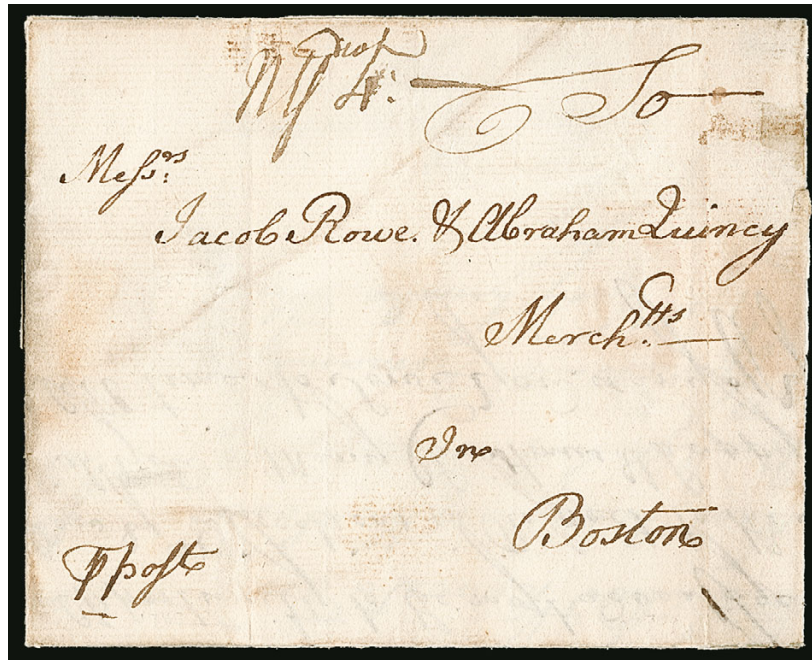 NY 4: To
Messrs:
Jacob Rowe. & Abraham Quincy
Merch.tts
In
Boston
⅌ post